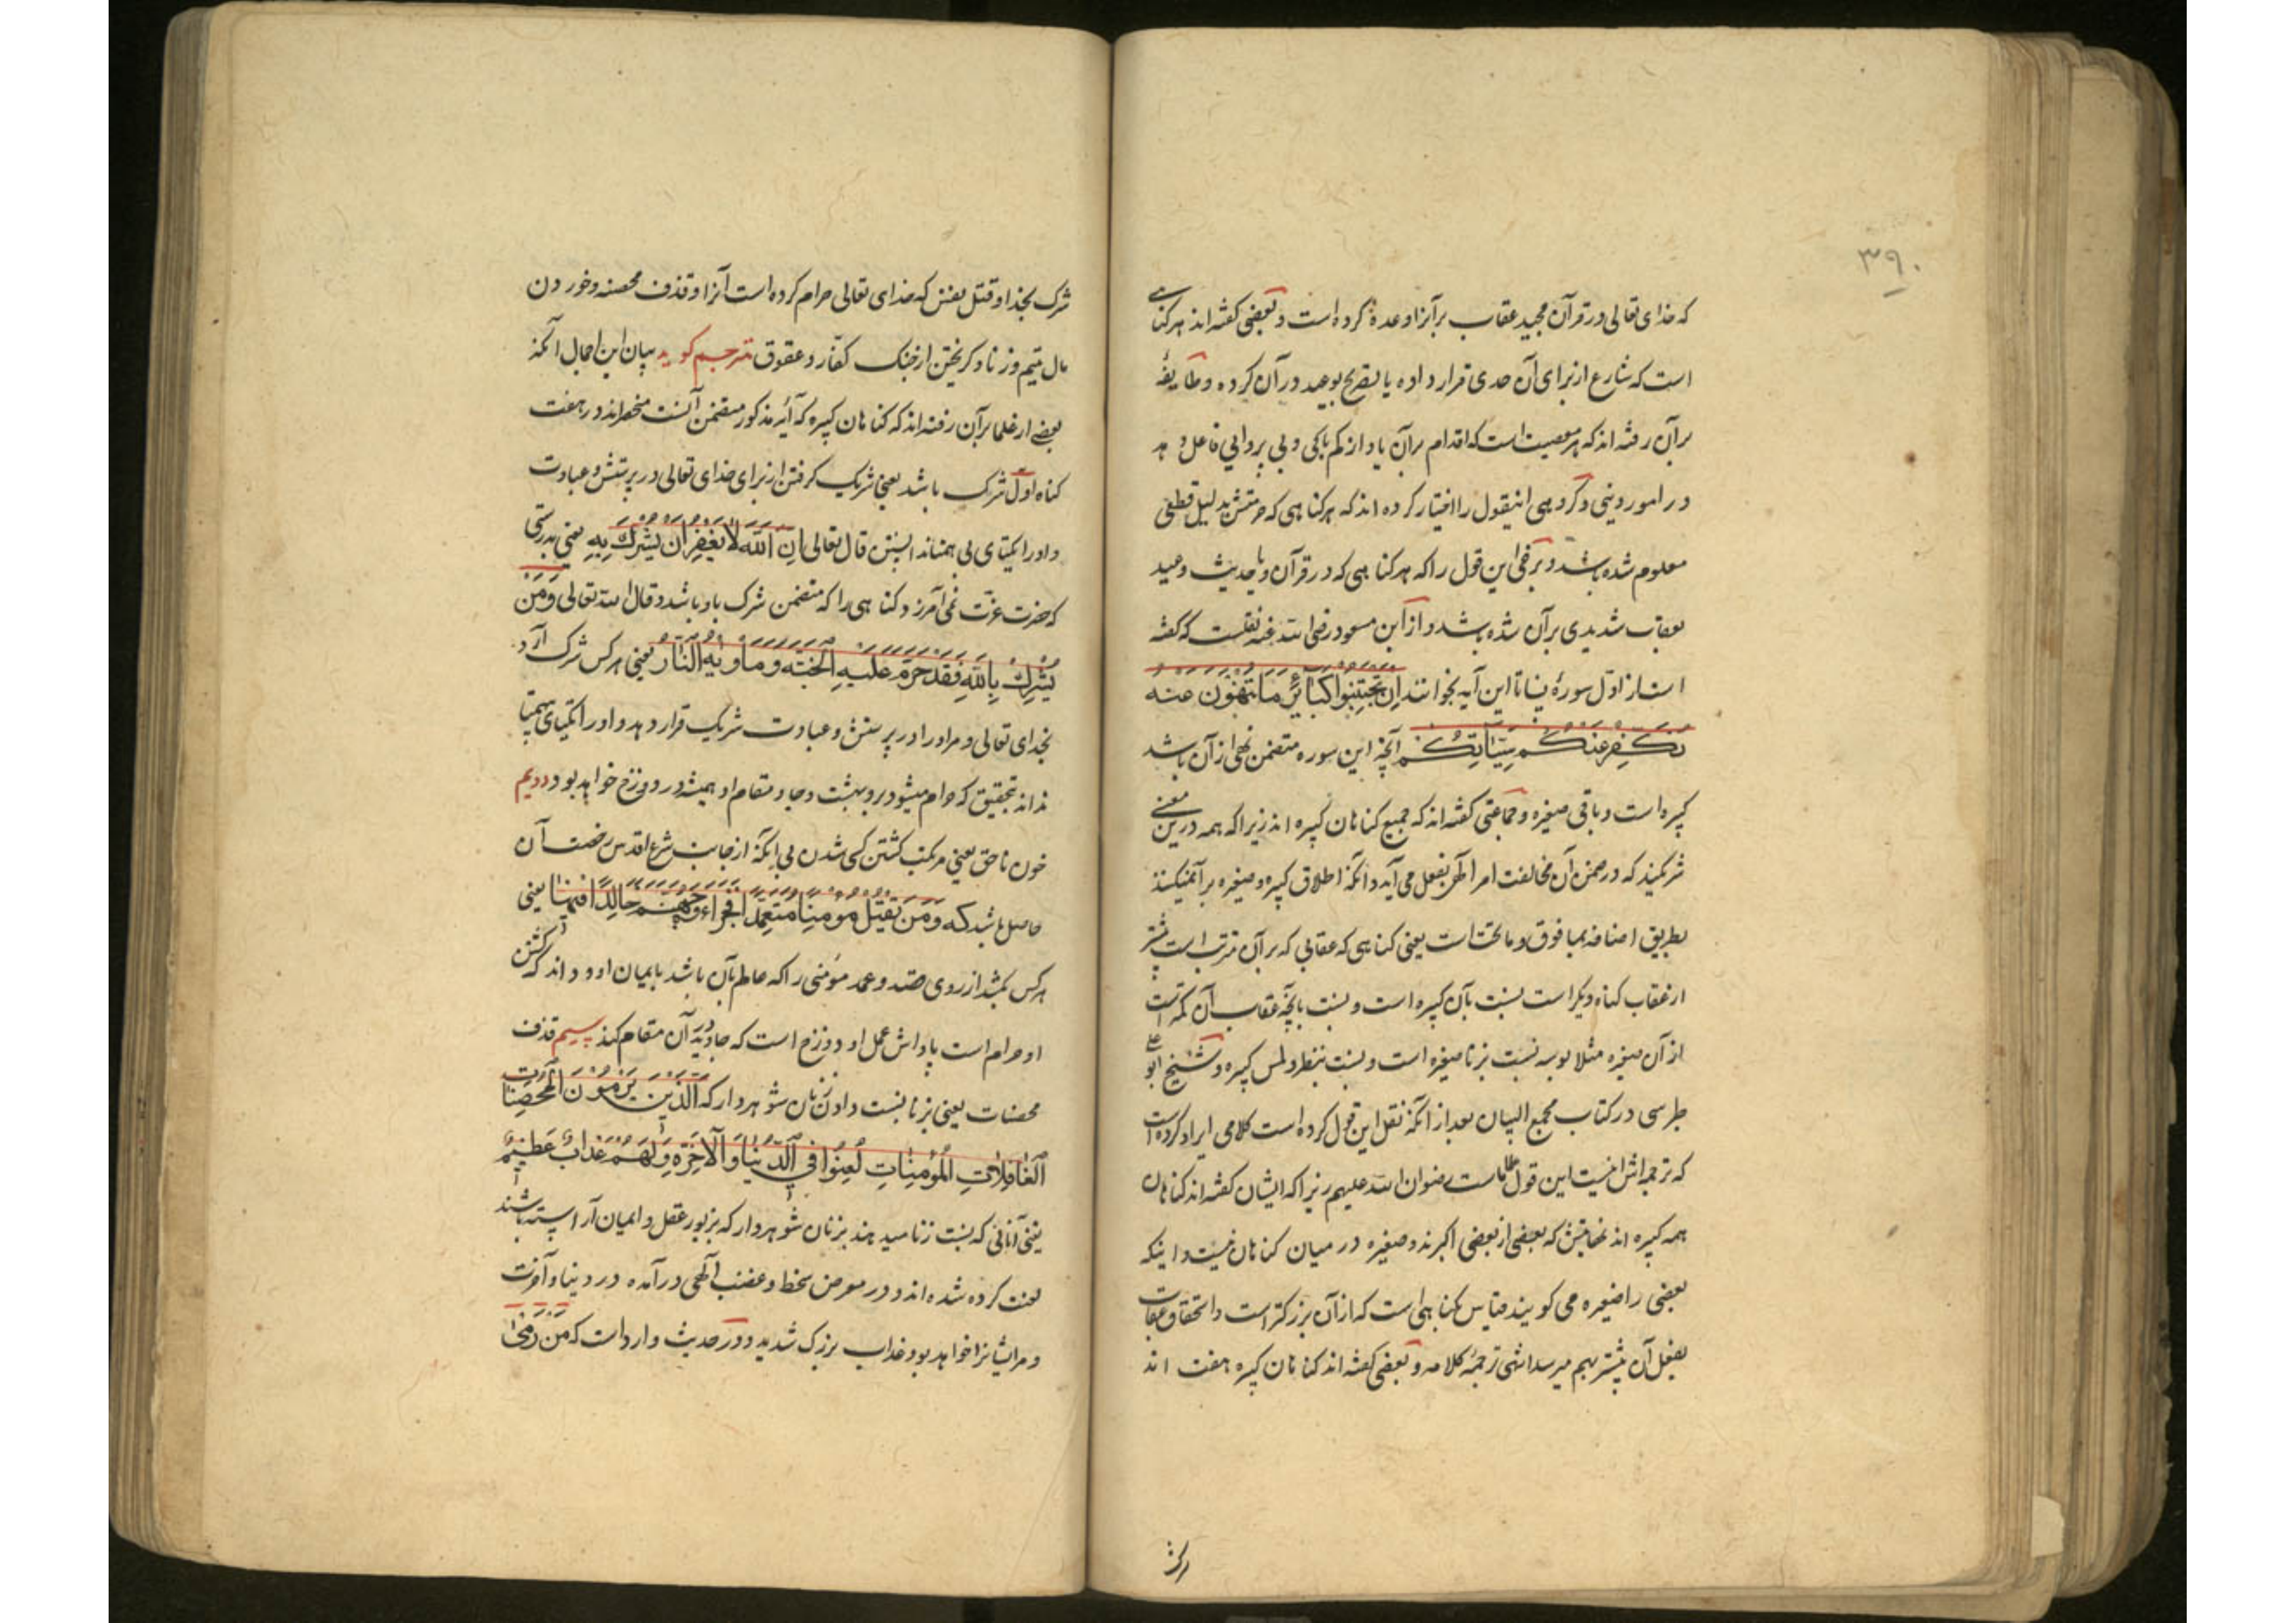 ۳۹۰
که خدای تعالی در قرآن مجید عقاب بر آنرا وعده کرده است و بعضی کفته اند هر کناهی
است که شارع از برای آن حدی قرار داده یا تصریح بوعید در آن کرده و طایفهٔ
برآن رفته اند که هر معصیت است که اقدام برآن یاد از کم باکی و بی پروایی فاعل دهد
در امور دینی و کروهی اینقول را اختیار کرده اند که هر کناهی که حرمتش بدلیل قطعی
معلوم شده باشد و برخی این قول را که هر کناهی که در قرآن و یا حدیث وعید
بعقاب شدیدی برآن شده باشد و از ابن مسعود رضی الله عنه نقلست که کفته
است از اول سورهٔ نسا تا این آیه بخوانند اِن تَجتَنِبُوا کَبآئِرَ مَا تُنهَونَ عَنه
نُکَفِّر عَنکُم سَیِّئَاتِکُم آنچه این سوره متضمن نهی از آن باشد
کبیره است و باقی صغیره و جماعتی کفته اند که جمیع کناهان کبیره اند زیرا که همه درین معنی
شریکند که در ضمن آن مخالفت امر الهی بفعل می آید و آنکه اطلاق کبیره و صغیره بر آن میکنند
بطریق اضافه بما فوق و ما تحت است یعنی کناهی که عقابی که برآن مترتب است بیشتر
از عقاب کناه دیکر است نسبت بآن کبیره است و نسبت بآنچه عقاب آن کمتر است
از آن صغیره مثلا بوسه نسبت بزنا صغیره است و نسبت بنظر و لمس کبیره و شیخ ابو علی
طبرسی در کتاب مجمع البیان بعد از آنکه نقل این قول کرده است کلامی ایراد کرده است
که ترجمه اش اینست این قول علماء ماست رضوان الله علیهم زیرا که ایشان کفته اند کناهان
همه کبیره اند نهایتش که بعضی از بعضی اکبرند و صغیره در میان کناهان نیست و اینکه
بعضی را صغیره می کویند بقیاس کناهی است که از آن بزرکتر است و استحقاق عقاب
بفعل آن بیشتر بهم میرسد انتهی ترجمهٔ کلامه و بعضی کفته اند کناهان کبیره هفت اند
شرک
شرک بخدا و قتل نفس که خدای تعالی حرام کرده است آنرا و قذف محصنه و خوردن
مال یتیم و زنا و کریختن از جنک کفّار و عقوق مترجم کوید بیان این اجمال آنکه
بعضی از علما برآن رفته اند که کناهان کبیره که آیهٔ مذکور متضمن آنست منحصراند در هفت
کناه اوّل شرک باشد یعنی شریک کرفتن از برای خدای تعالی در پرستش و عبادت
و او را یکتای بی همتا ندانستن قال تعالی اِنَّ اللّهَ لَا یَغفِرُ اَن یُشرَکَ بِهِ یعنی بدرستی
که حضرت عزّت نمی آمرزد کناهی را که متضمن شرک باو باشد و قال الله تعالی وَمَن
یُشرِکْ بِاللّهِ فَقَد حَرَّمَ عَلَیهِ الجَنَّةَ وَمَأوَیهُ النَّارُ یعنی هر کس شرک آرد
بخدای تعالی و مر او را در پرستش و عبادت شریک قرار دهد و او را یکتای بیهمتا
نداند بتحقیق که حرام میشود برو بهشت و جا و مقام او همیشه در دوزخ خواهد بود دویم
خون ناحق یعنی مرتکب کشتن کسی شدن بی آنکه از جانب شرع اقدس رخصت آن
حاصل باشد که وَمَن یَقتُل مُومِنًا مُتَعَمِّدًا فَجَزاءُهُ جَهَنَّمُ خَالِدًا فِیهَا یعنی
هر کس بکشد از روی قصد و عمد مؤمنی را که عالم بآن باشد بایمان او و داند که کشتن
او حرام است پاداش عمل او دوزخ است که جاوید در آن مقام کند سیم قذف
محصنات یعنی بزنا نسبت دادن زنان شوهردار که الَّذِینَ یَرمُونَ المُحصَنَاتِ
الغَافِلَاتِ المُؤمِنَاتِ لُعِنُوا فِی الدُّنیَا وَالآخِرَةِ وَلَهُم عَذَابٌ عَظِیمٌ
یعنی آنانی که نسبت زنا میدهند بزنان شوهردار که بزیور عقل و ایمان آراسته باشند
لعنت کرده شده اند و در معرض سخط و غضب الهی درآمده در دنیا و آخرت
و مر ایشانرا خواهد بود عذاب بزرک شدید و در حدیث وارد است که مَن رَمَی